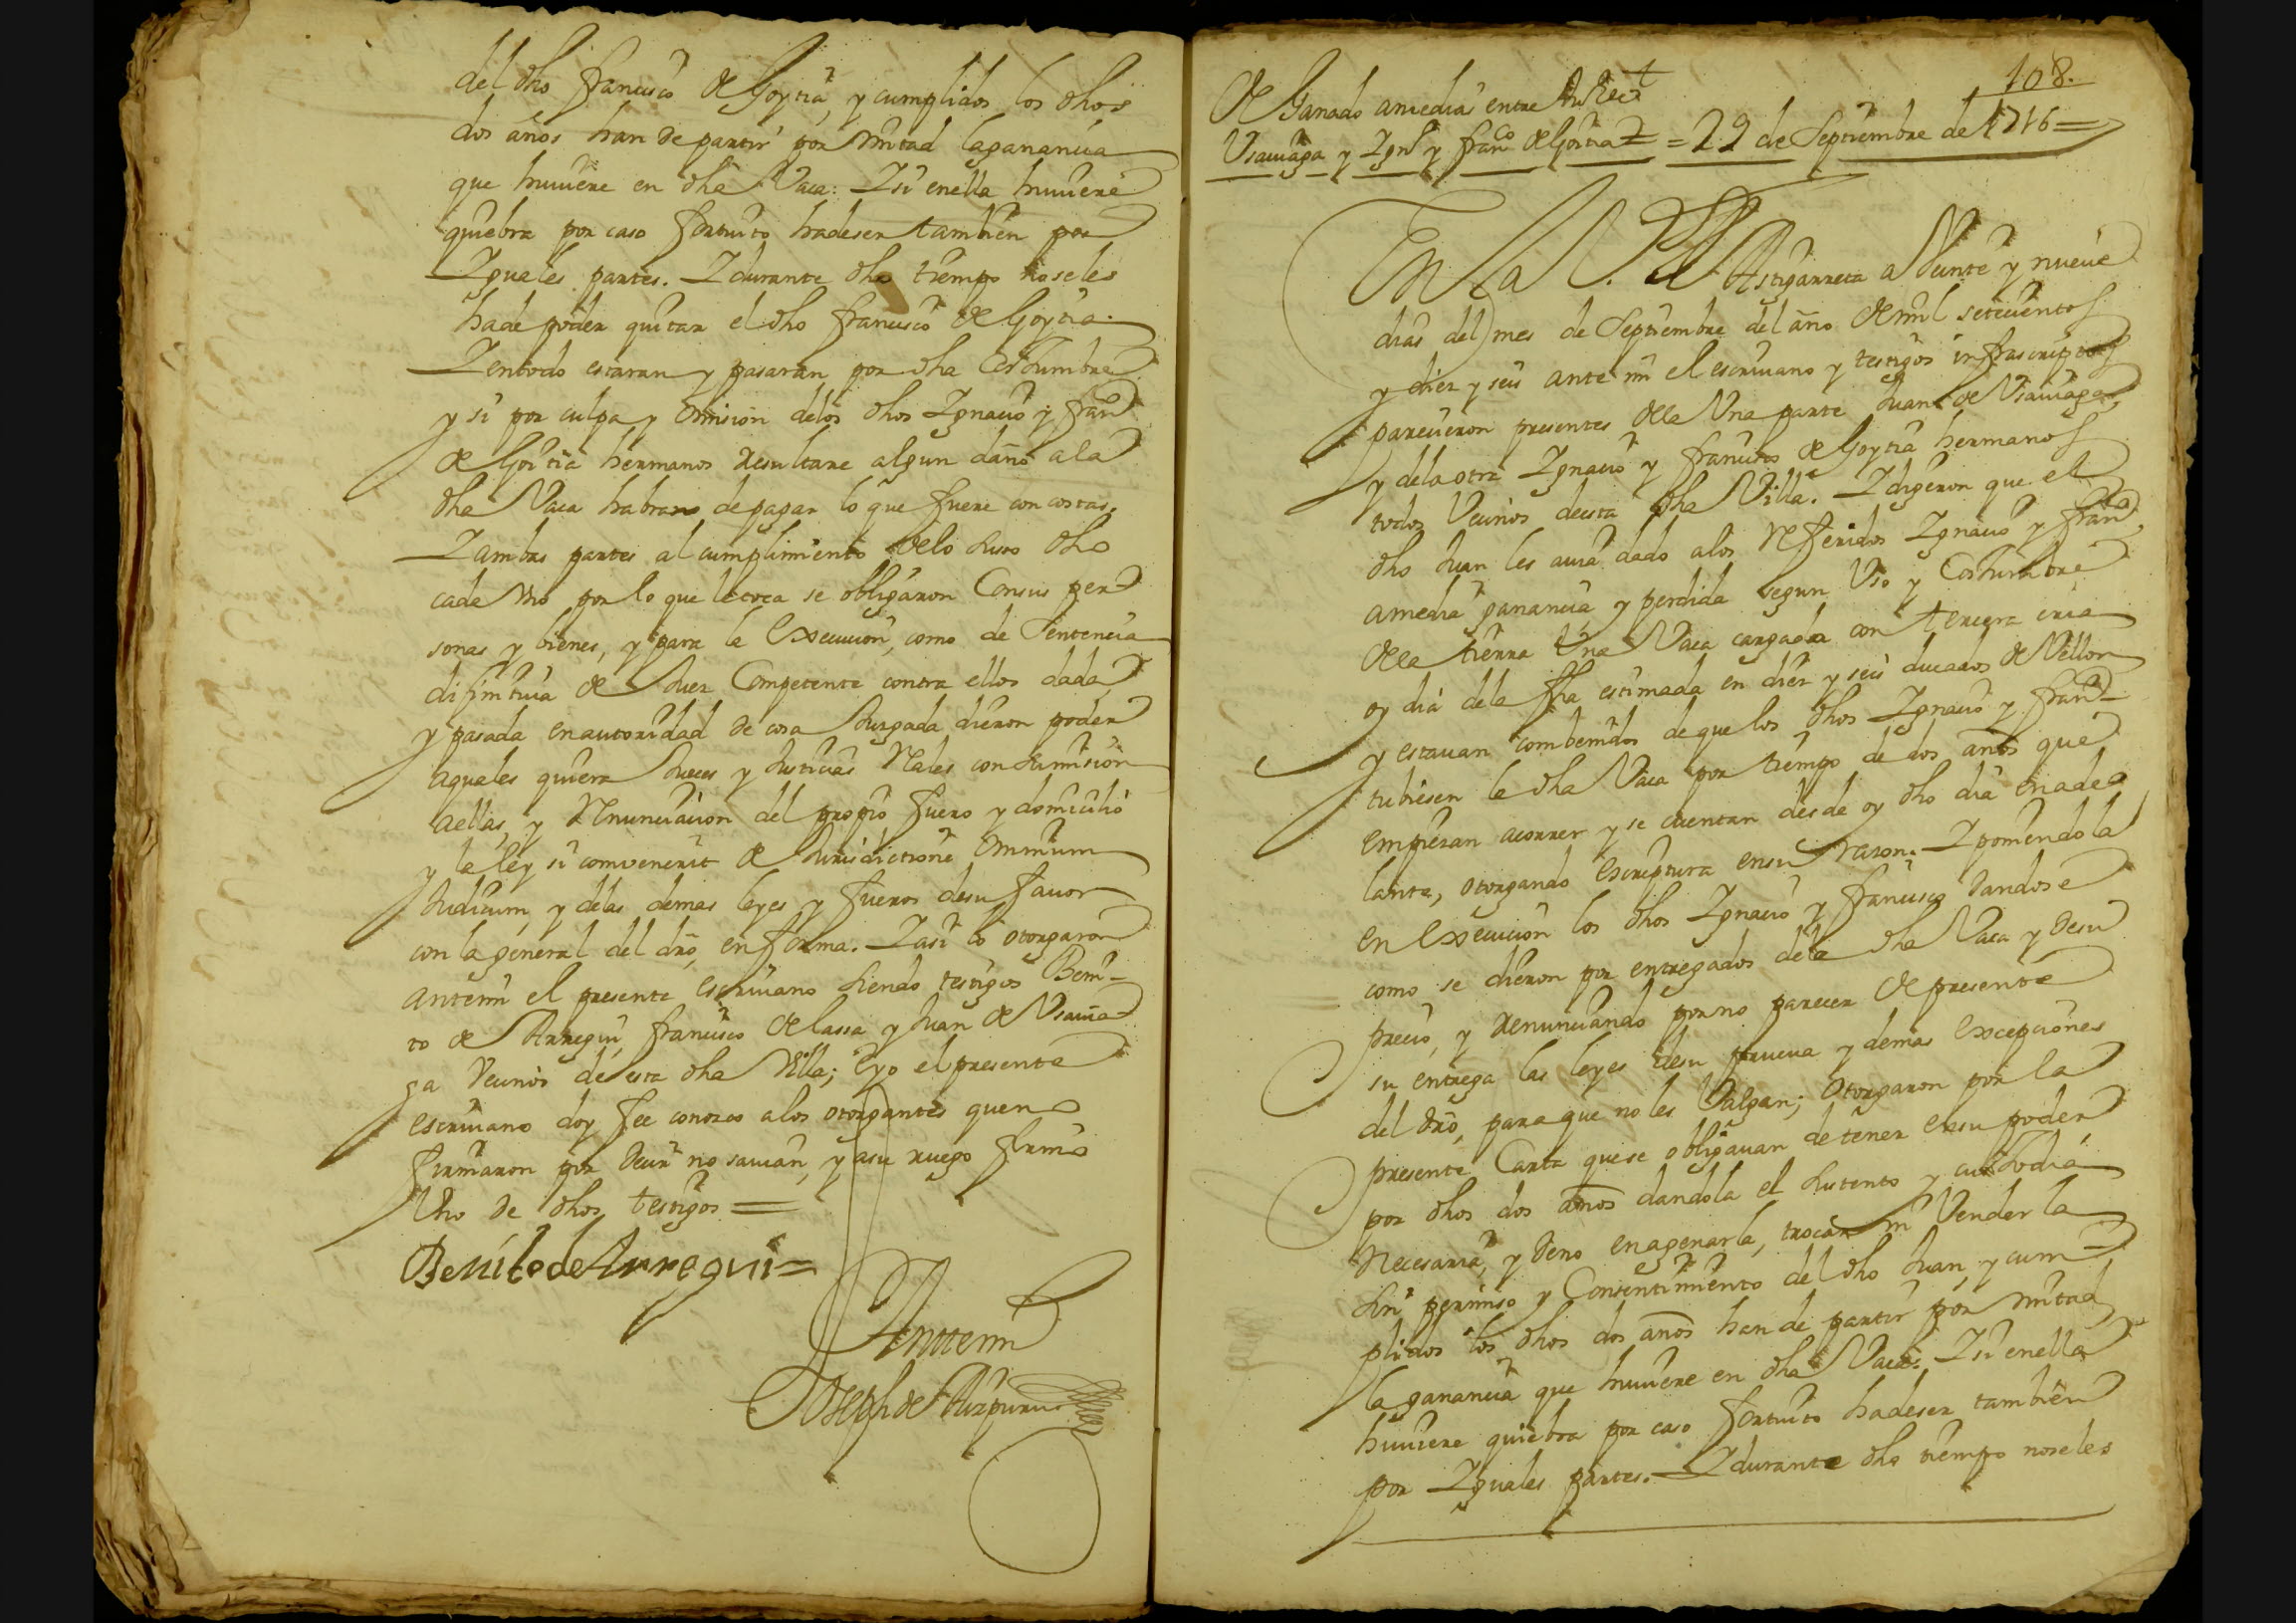 del dho francisco de Goytia, y cumplidos los dhos
dos años han de partir por mitad laganancia
que huuiere en dha Vaca: Y si enella huuiere
quiebra por caso fortuito hadeser tambien por
Yguales partes. Y durante dho tiempo noseles
hade poder quitar el dho francisco de Goytia.
Y entodo estaran y pasaran por dha Costumbre
y si por culpa y omision delos dhos Ygnacio y fran
de Goitia hermanos resultare algun daño ala
dha Vaca habran depagar lo que fuere con costas.
Y ambas partes al cumplimiento delo suso dho
cada Vno por lo que letoca se obligaron Consus per
sonas y bienes, y para la Execucion, como de Sentencia
difinitiua de Juez Competente contra ellos dada
y pasada enautoridad de cosa Juzgada dieron poder
aquales quiera Jueces y Justicias Rales con sumision
aellas, y Renunciacion del propio fuero y domicilio
y la ley si convenerit de Jurisdictione Omnium
Judicum, y delas demas leyes y fueros desu fauor
con la general del dro, en forma. Y asi lo otorgaron
antemi el presente escriuano siendo testigos Beni-
to de Arregui, francisco de lassa y Juan de Vsauia
ga Vecinos de esta dha Villa; Eyo el presente
escriuano doy fee conozco alos otorgantes queno
firmaron por decir no sauian, y asu ruego firmo
Vno de dhos testigos =
Benito de Arregui =
Antemi
Joseph de Aizpuru
108.
de Ganado amedia entre
Vsauiaga y Ygn.o y fran.co de Goitia = 29 de Septiembre de 1716 =
En la V.a de Astigarreta a Veinte y nueue
dias del mes de Septiembre del año de mil setecientos
y diez y seis ante mi el escriuano y testigos infrascriptos
parecieron presentes dela Vna parte Juan de Vsauiaga,
y dela otra Ygnacio y francisco de Goytia hermanos
todos Vecinos deesta dha Villa. Y digeron que el
dho Juan les auia dado alos Referidos Ygnacio y fran
amedia ganancia y perdida segun Vso y Costumbre
dela tierra Vna Vaca cargada con tercera cria
oy dia dela fha estimada en diez y seis ducados de Vellon
y estauan combenidos de que los dhos Ygnacio y fran
tubiesen la dha Vaca por tiempo de dos años que
empiezan acorrer y se cuentan desde oy dho dia enade
lante, otorgando escriptura ensu razon. Y poniendola
en execucion los dhos Ygnacio y francisco dandose
como se dieron por entregados dela dha Vaca y desu
precio, y renunciando por no parecer de presente
su entrega las leyes desu prueua y demas excepciones
del dro, para que no les Valgan; Otorgaron por la
presente Carta quese obligauan de tener ensu poder
por dhos dos años dandola el sustento y custodia
Necesaria, y deno enagenarla, trocar ni Venderla
sin permiso y Consentimiento del dho Juan, y cum-
plidos los dhos dos años han de partir por mitad
la ganancia que huuiere en dha Vaca: Y si enella
huuiere quiebra por caso fortuito hadeser tambien
por Yguales partes. Y durante dho tiempo noseles